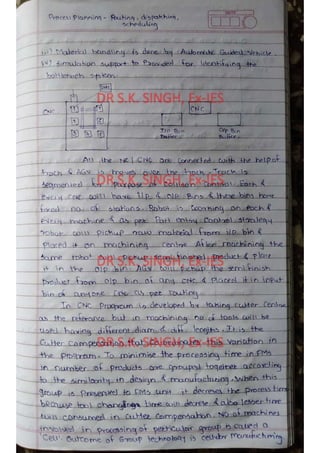 Process Planning - Routing, dispatching,
scheduling
(iv) Material handling is done by Automatic Guided Vehicle.
(v) Simulation support is Provided for identifying the
bottleneck system.
CNC
CNC
Bin
Buffer
O/p Bin
Buffer
DR S.K. SINGH, Ex-IES
All the NC/CNC are connected with the help of
track & AGV is moves over the track. Track is
segmented for purpose of collision control. Each &
every CNC will have I/P & O/P Bins & these bins have
fixed no. of stations. Robot is located on each &
every machine & as per Part entry control strategy
robot will pickup raw material from I/P bin &
placed it on machining centre. After machining the
same robot will pickup semifinished product & place
DR S.K. SINGH, Ex-IES
it in the O/p bin. AGV will pickup the semi finish
product from O/p bin of any CNC & placed it in input
bin of anyone CNC as per routing.
In CNC Program is developed by taking cutter centre
as the reference but in machining no. of tools will be
used having different diam. & diff. lengths. It is the
cutter compensation that
DR S.K. SINGH, Ex-IES
this variation in
the Program. To minimise the processing time in FMS
in number of products are grouped together according
to the similarity in design & manufacturing. When this
group is
to FMS unit it decreses the process time
because tool
time will decrese & also lesser time
consumed in cutter compensation. No of machines
involved in processing of particular group is called a
Cell. Outcome of Group technology is cellular manufacturing